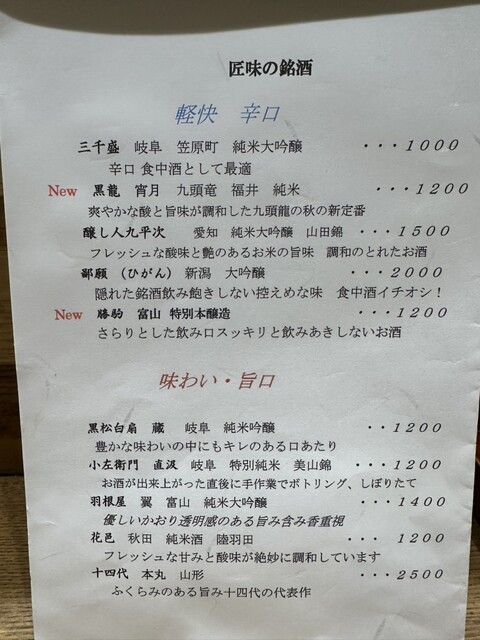 匠味の銘酒
軽快　辛口
三千盛　岐阜　笠原町　純米大吟醸　・・・1000
辛口 食中酒として最適
New　黒龍　宵月　九頭竜　福井　純米　・・・1200
爽やかな酸と旨味が調和した九頭龍の秋の新定番
醸し人九平次　愛知　純米大吟醸　山田錦　・・・1500
フレッシュな酸味と艶のあるお米の旨味　調和のとれたお酒
鄙願　（ひがん）　新潟　大吟醸　・・・2000
隠れた銘酒飲み飽きしない控えめな味　食中酒イチオシ！
New　勝駒　富山　特別本醸造　・・・1200
さらりとした飲み口スッキリと飲みあきしないお酒
味わい・旨口
黒松白扇　蔵　岐阜　純米吟醸　・・1200
豊かな味わいの中にもキレのある口あたり
小左衛門　直汲　岐阜　特別純米　美山錦　・・・1200
お酒が出来上がった直後に手作業でボトリング、しぼりたて
羽根屋　翼　富山　純米大吟醸　・・・1400
優しいかおり透明感のある旨み含み香重視
花邑　秋田　純米酒　陸羽田　・・　1200
フレッシュな甘みと酸味が絶妙に調和しています
十四代　本丸　山形　・・・2500
ふくらみのある旨み十四代の代表作